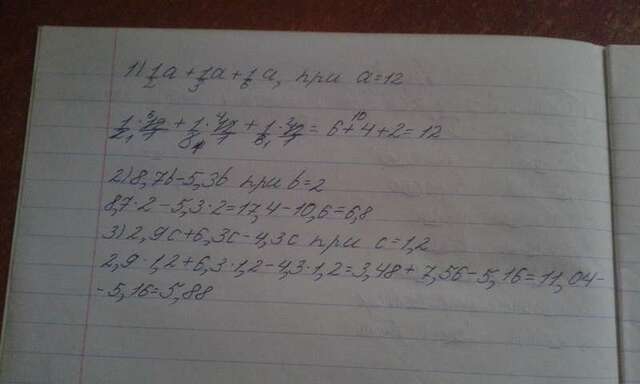 1) 1/2 a + 1/3 a + 1/6 a, при a=12
1/2 · 12/1 + 1/3 · 12/1 + 1/6 · 12/1 = 6+4+2=12
2) 8,7b-5,3b при b=2
8,7·2-5,3·2=17,4-10,6=6,8
3) 2,9c+6,3c-4,3c при c=1,2
2,9·1,2+6,3·1,2-4,3·1,2=3,48+7,56-5,16=11,04-
-5,16=5,88